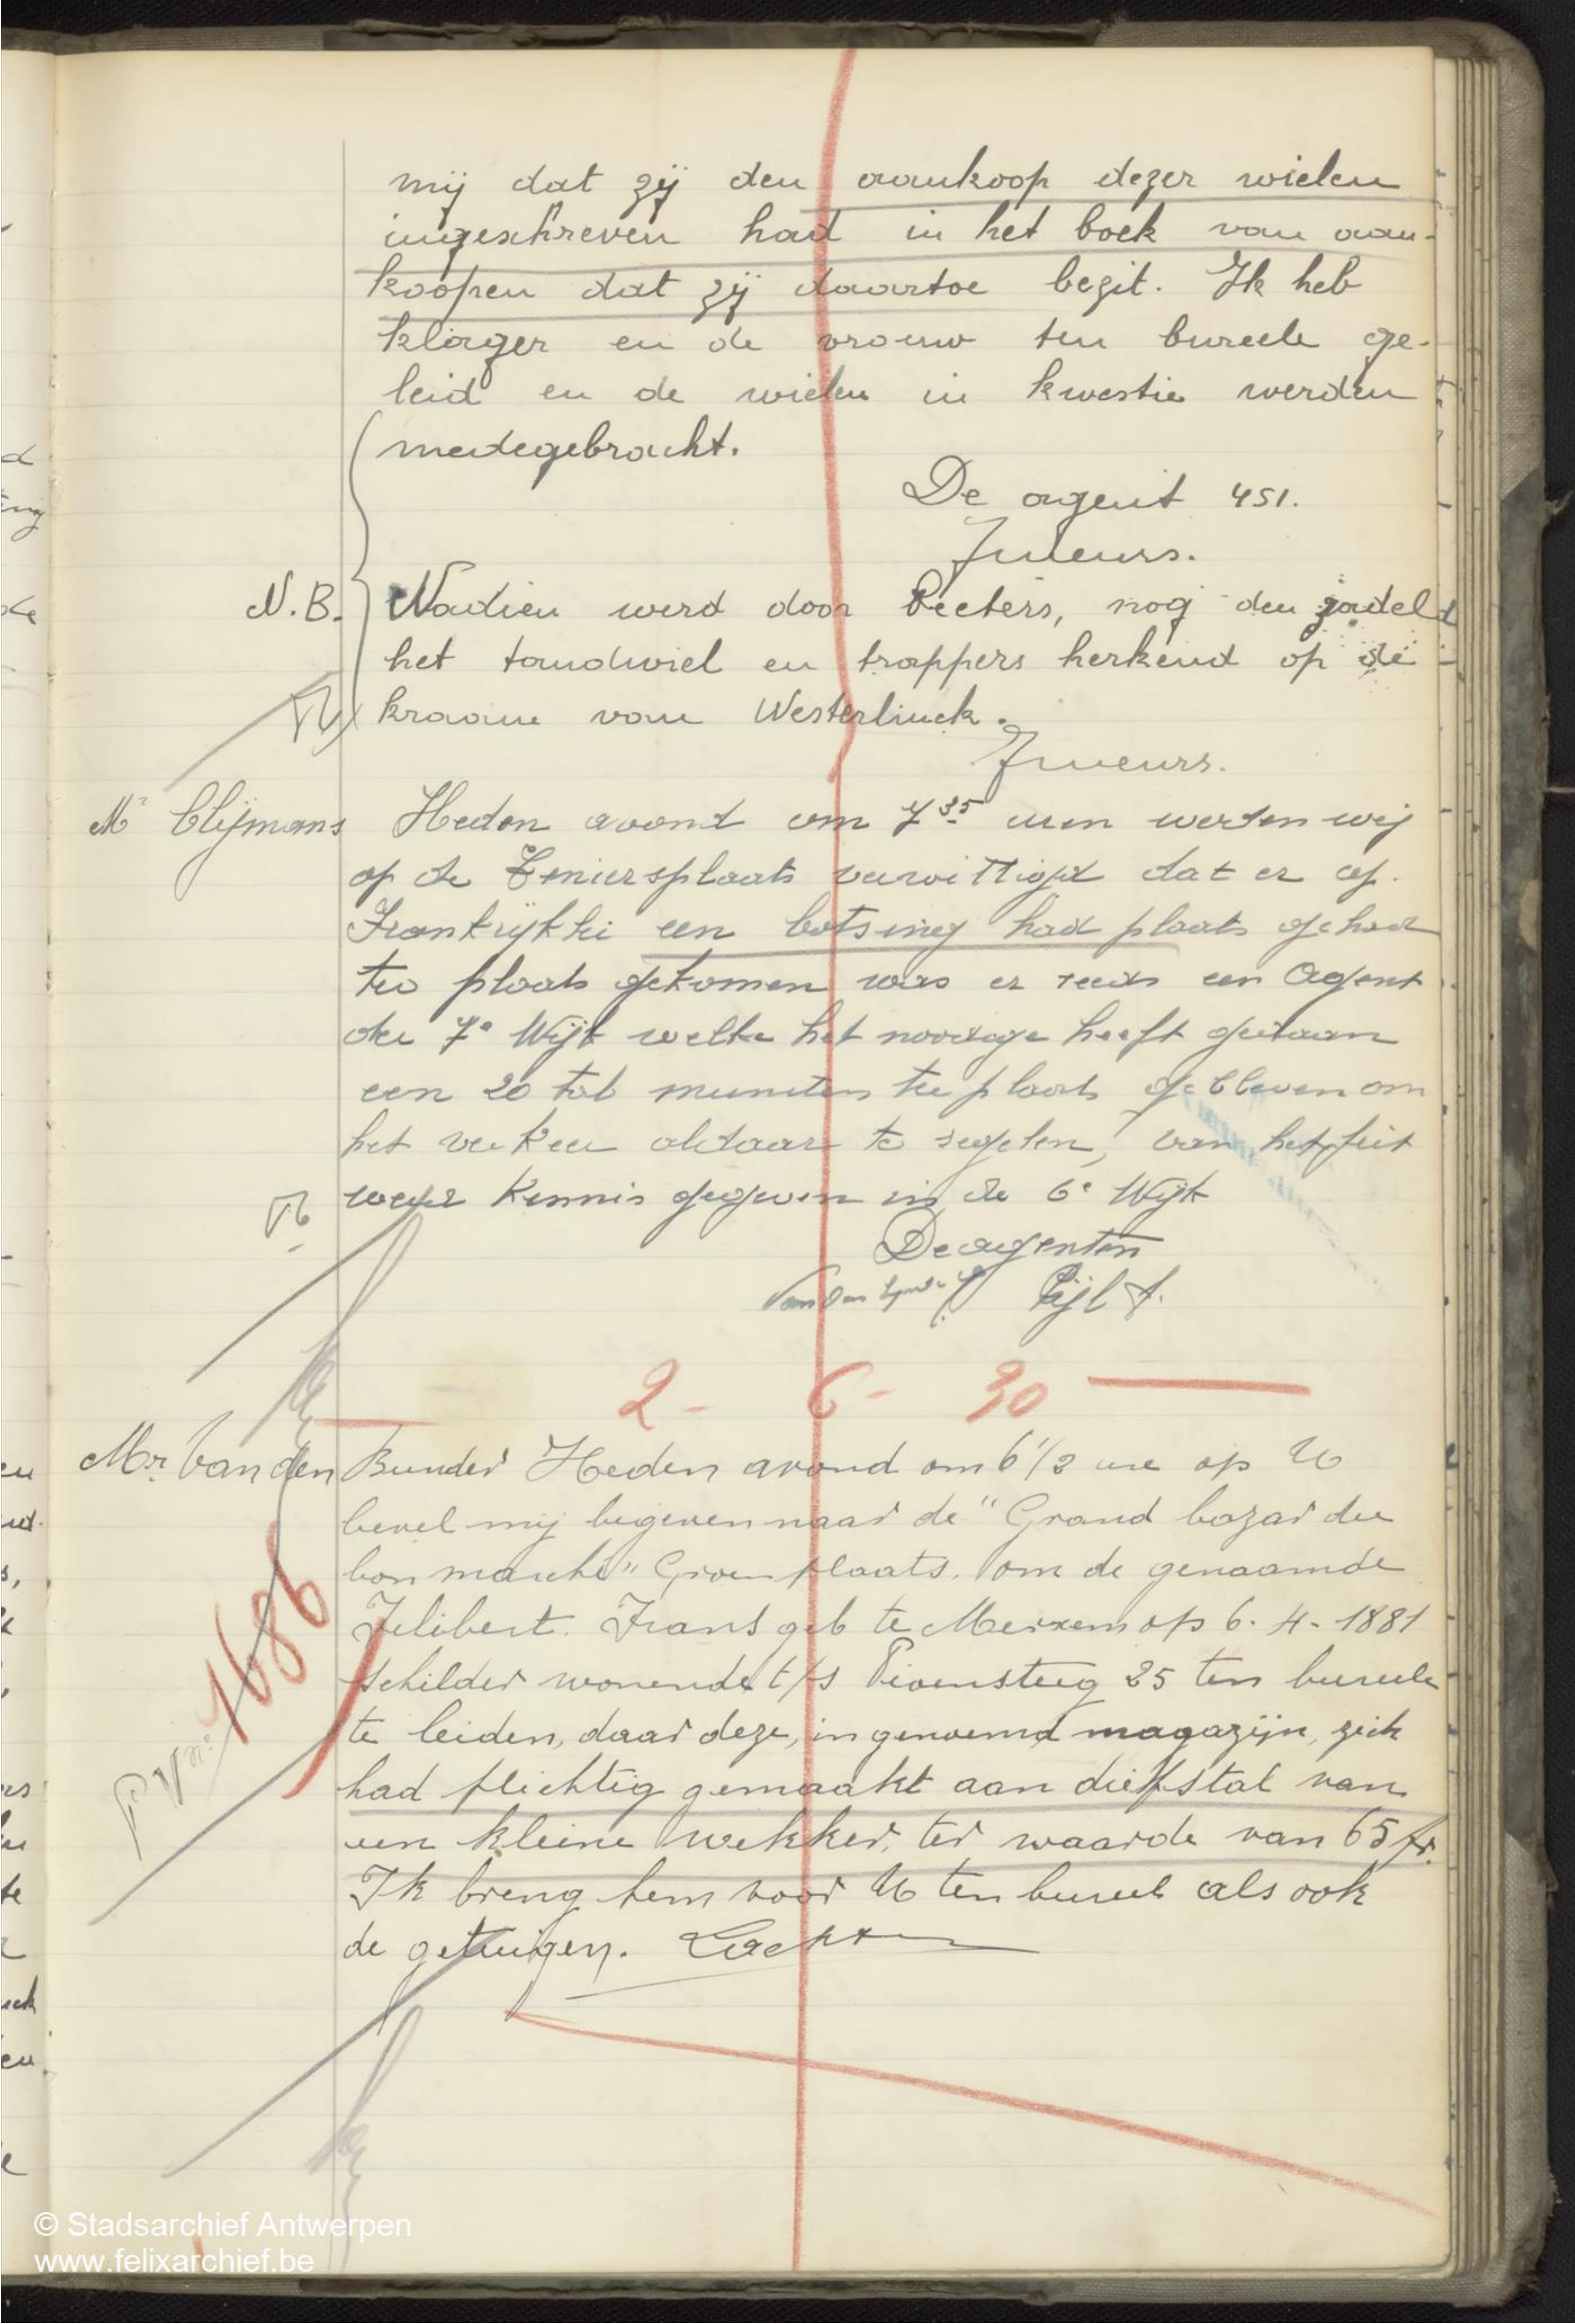 mij dat zij den aankoop dezer wielen
ingeschreven had in het boek van aan-
koopen dat zij daartoe bezit. Ik heb
klager en de vrouw ten bureele ge-
leid en de wielen in kwestie werden
medegebracht.
De agent 451.
N.B. Nadien werd door Peeters, nog den zadel
het tandwiel en trappers herkend op de
kraam van Westerlinck.
Mr Clijmans Heden avond om 7 35 uren werden wij
op de Teniersplaats verwittigd dat er op
Frankrijklei een botsing had plaats gehad
ter plaats gekomen was er reeds een Agent
der 7e Wijk welke het noodige heeft gedaan
een 20 tal minuten ter plaats gebleven om
het verkeer aldaar te regelen, van het feit
werd kennis gegeven in de 6e Wijk
De agenten
Pijl F.
2 - 6 - 30
Mr. Van den Bunder Heden avond om 6 1/2 ure op U
bevel mij begeven naar de "Grand bazar du
bon marche" Groenplaats. om de genaamde
Filibert. Frans geb te Merxem op 6. 4. 1881
schilder wonende t/s 25 ten bureele
te leiden, daar deze, in genoemd magazijn, zich
had plichtig gemaakt aan diefstal van
een kleine wekker, ter waarde van 65 fr.
Ik breng hem voor U ten bureel als ook
de getuigen.
P V n° 1686
© Stadsarchief Antwerpen
www.felixarchief.be